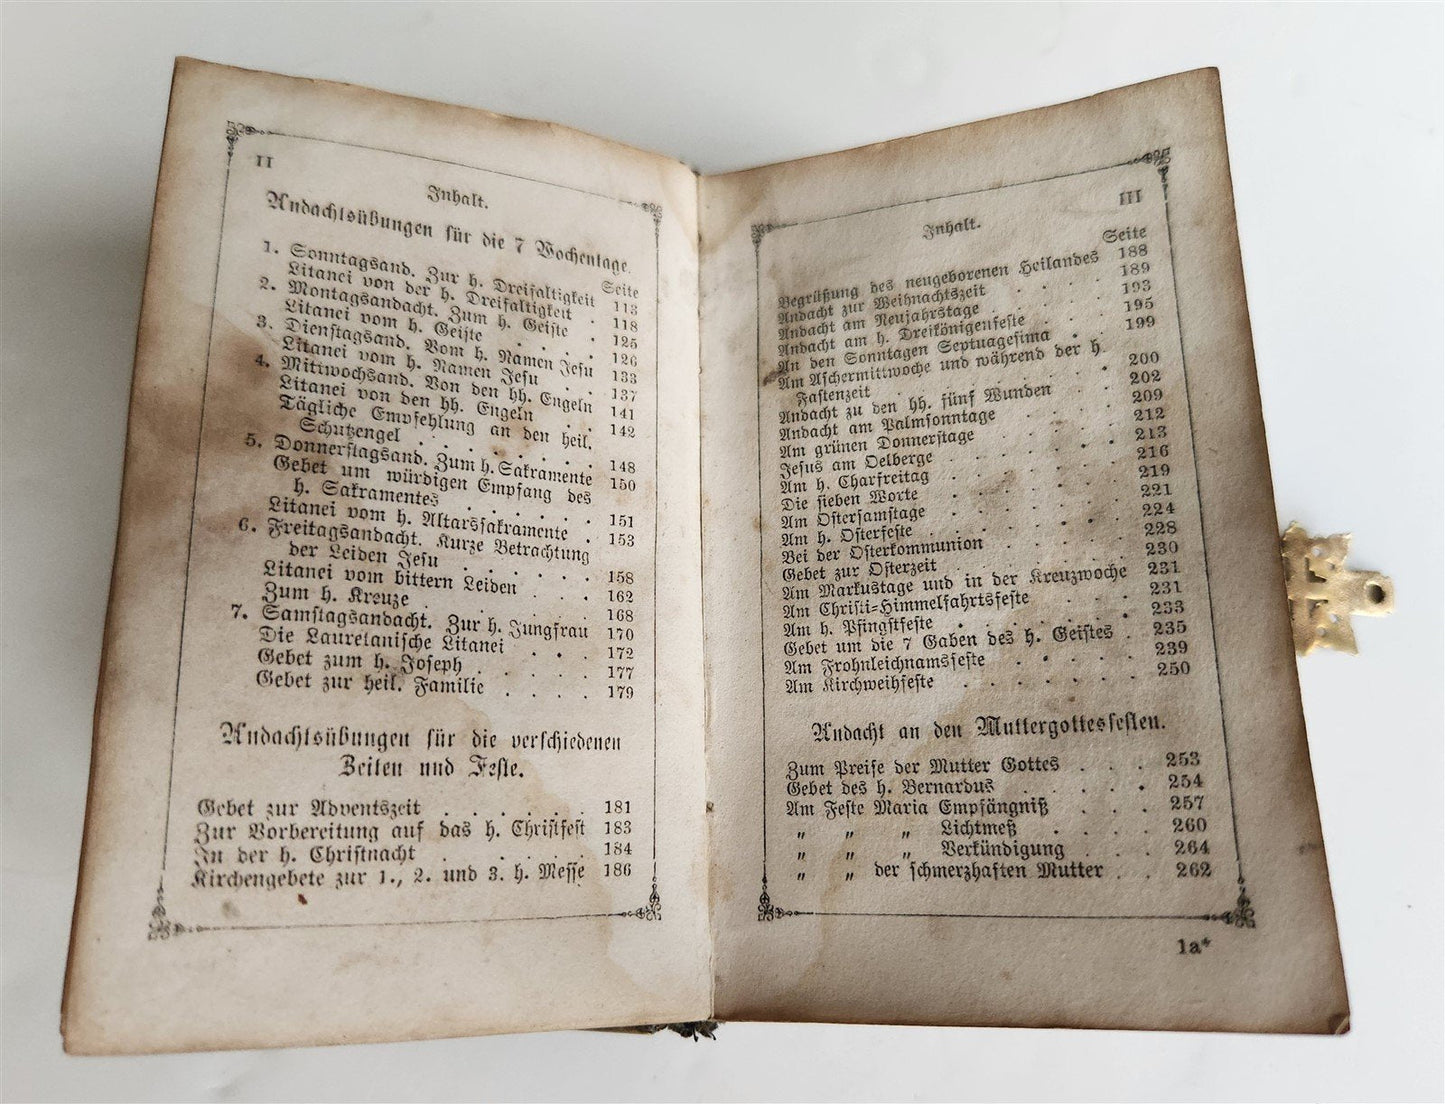 II
Inhalt.
Andachtsübungen für die 7 Wochentage.
Seite
1. Sonntagsand. Zur h. Dreifaltigkeit 113
Litanei von der h. Dreifaltigkeit . 118
2. Montagsandacht. Zum h. Geiste . 125
Litanei vom h. Geiste . . . . 126
3. Dienstagsand. Vom h. Namen Jesu 133
Litanei vom h. Namen Jesu . . 137
4. Mittwochsand. Von den hh. Engeln 141
Litanei von den hh. Engeln . . 142
Tägliche Empfehlung an den heil.
Schutzengel . . . . . . . 148
5. Donnerstagsand. Zum h. Sakramente 150
Gebet um würdigen Empfang des
h. Sakramentes . . . . . . 151
Litanei vom h. Altarssakramente . 153
6. Freitagsandacht. Kurze Betrachtung
der Leiden Jesu . . . . . . 158
Litanei vom bittern Leiden . . . 162
Zum h. Kreuze . . . . . . 168
7. Samstagsandacht. Zur h. Jungfrau 170
Die Lauretanische Litanei . . . 172
Gebet zum h. Joseph . . . . . 177
Gebet zur heil. Familie . . . . 179
Andachtsübungen für die verschiedenen
Zeiten und Feste.
Gebet zur Adventszeit . . . . . . 181
Zur Vorbereitung auf das h. Christfest 183
In der h. Christnacht . . . . . 184
Kirchengebete zur 1., 2. und 3. h. Messe 186
III
Inhalt.
Seite
Begrüßung des neugeborenen Heilandes 188
Andacht zur Weihnachtszeit . . . . 189
Andacht am Neujahrstage . . . . 193
Andacht am h. Dreikönigenfeste . . . 195
An den Sonntagen Septuagesima . . 199
Am Aschermittwoche und während der h.
Fastenzeit . . . . . . . . 200
Andacht zu den hh. fünf Wunden . . 202
Andacht am Palmsonntage . . . . 209
Am grünen Donnerstage . . . . 212
Jesus am Oelberge . . . . . . 213
Am h. Charfreitag . . . . . . 216
Die sieben Worte . . . . . . 219
Am Ostersamstage . . . . . . 221
Am h. Osterfeste . . . . . . 224
Bei der Osterkommunion . . . . . 228
Gebet zur Osterzeit . . . . . . 230
Am Markustage und in der Kreuzwoche 231
Am Christi-Himmelfahrtsfeste . . . 231
Am h. Pfingstfeste . . . . . . 233
Gebet um die 7 Gaben des h. Geistes . 235
Am Frohnleichnamsfeste . . . . . 239
Am Kirchweihfeste . . . . . . . 250
Andacht an den Muttergottesfesten.
Zum Preise der Mutter Gottes . . . 253
Gebet des h. Bernardus . . . . . 254
Am Feste Maria Empfängniß . . . 257
" " " Lichtmeß . . . . 260
" " " Verkündigung . . . 264
" " der schmerzhaften Mutter . . 262
1a*